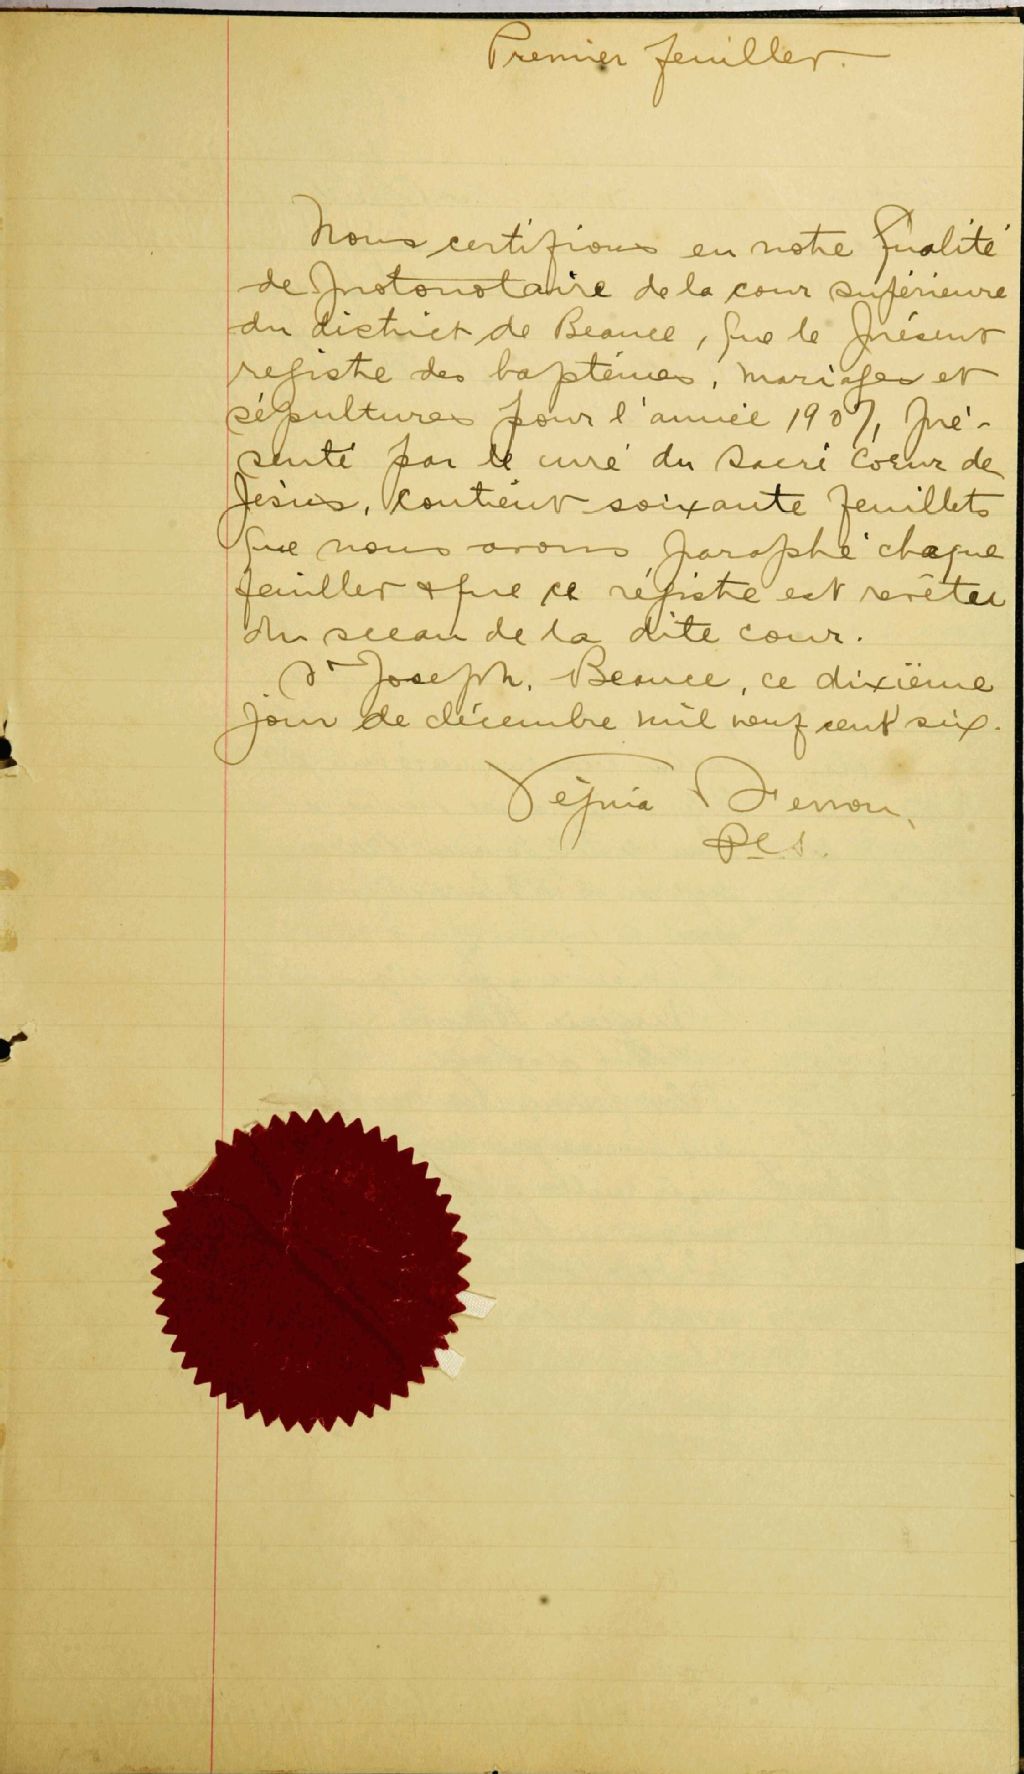 Premier feuillet.
Nous certifions en notre qualité
de protonotaire de la cour supérieure
du district de Beauce, que le présent
registre des baptêmes, mariages et
sépultures pour l'année 1907, pré-
senté par le curé du Sacré Coeur de
Jésus, contient soixante feuillets
que nous avons paraphé chaque
feuillet & que ce régistre est revêtu
du sceau de la dite cour.
St Joseph, Beauce, ce dixième
jour de décembre mil neuf cent six.
P C S.